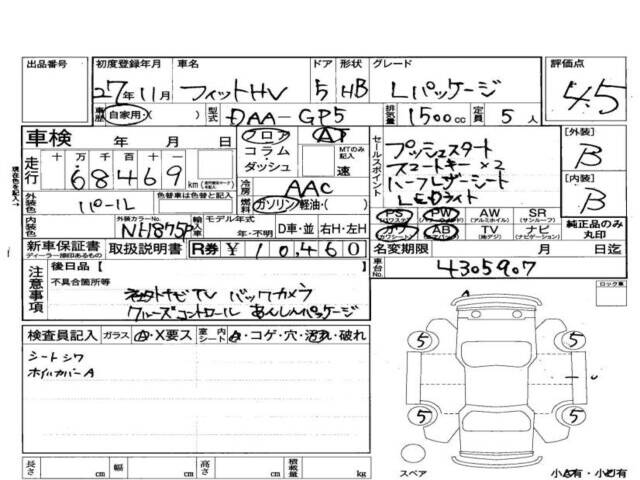 出品番号 初度登録年月 車名 ドア 形状 グレード 評価点
27年11月 フィットHV 5 HB Lパッケージ 4.5
車歴 自家用・X( ) 型式 DAA-GP5 排気量 1500cc 定員 5人
車検 年 月 日 フロア AT MTのみ記入 速
コラム・ダッシュ
走行 十万千百十 68469 km
冷房 AAC
外装色 パール 色替車は色替と記入 燃料 ガソリン・軽油・( )
内装色 外装カラーNo. NH875P 輸入車 モデル年式 年・不明 D車・並 右H・左H
セールスポイント
プッシュスタート
スマートキー×2
ハーフレザーシート
LEDライト
[外装] B
[内装] B
PS (パワステ) PW (パワーウインド) AW (アルミホイル) SR (サンルーフ)
カワ (カワシート) AB (エアバック) TV (地デジ) ナビ (ナビゲーション)
純正品のみ丸印
新車保証書 ディーラー捺印あるもの 取扱説明書 R券 ¥10,460 名変期限 月 日迄
車台No. 4305907
注意事項 後日品【 】
不具合箇所等
社外ナビTV バックカメラ
クルーズコントロール あんしんパッケージ
ロック車
検査員記入 ガラス A・X要ス 室内シート A・コゲ・穴・汚れ・破れ
シートシワ
ホイルカバーA
A
5 5
5 5
スペア 小A有・小U有
長さ cm 幅 cm 高さ cm 積載量 kg
現在色を記入→